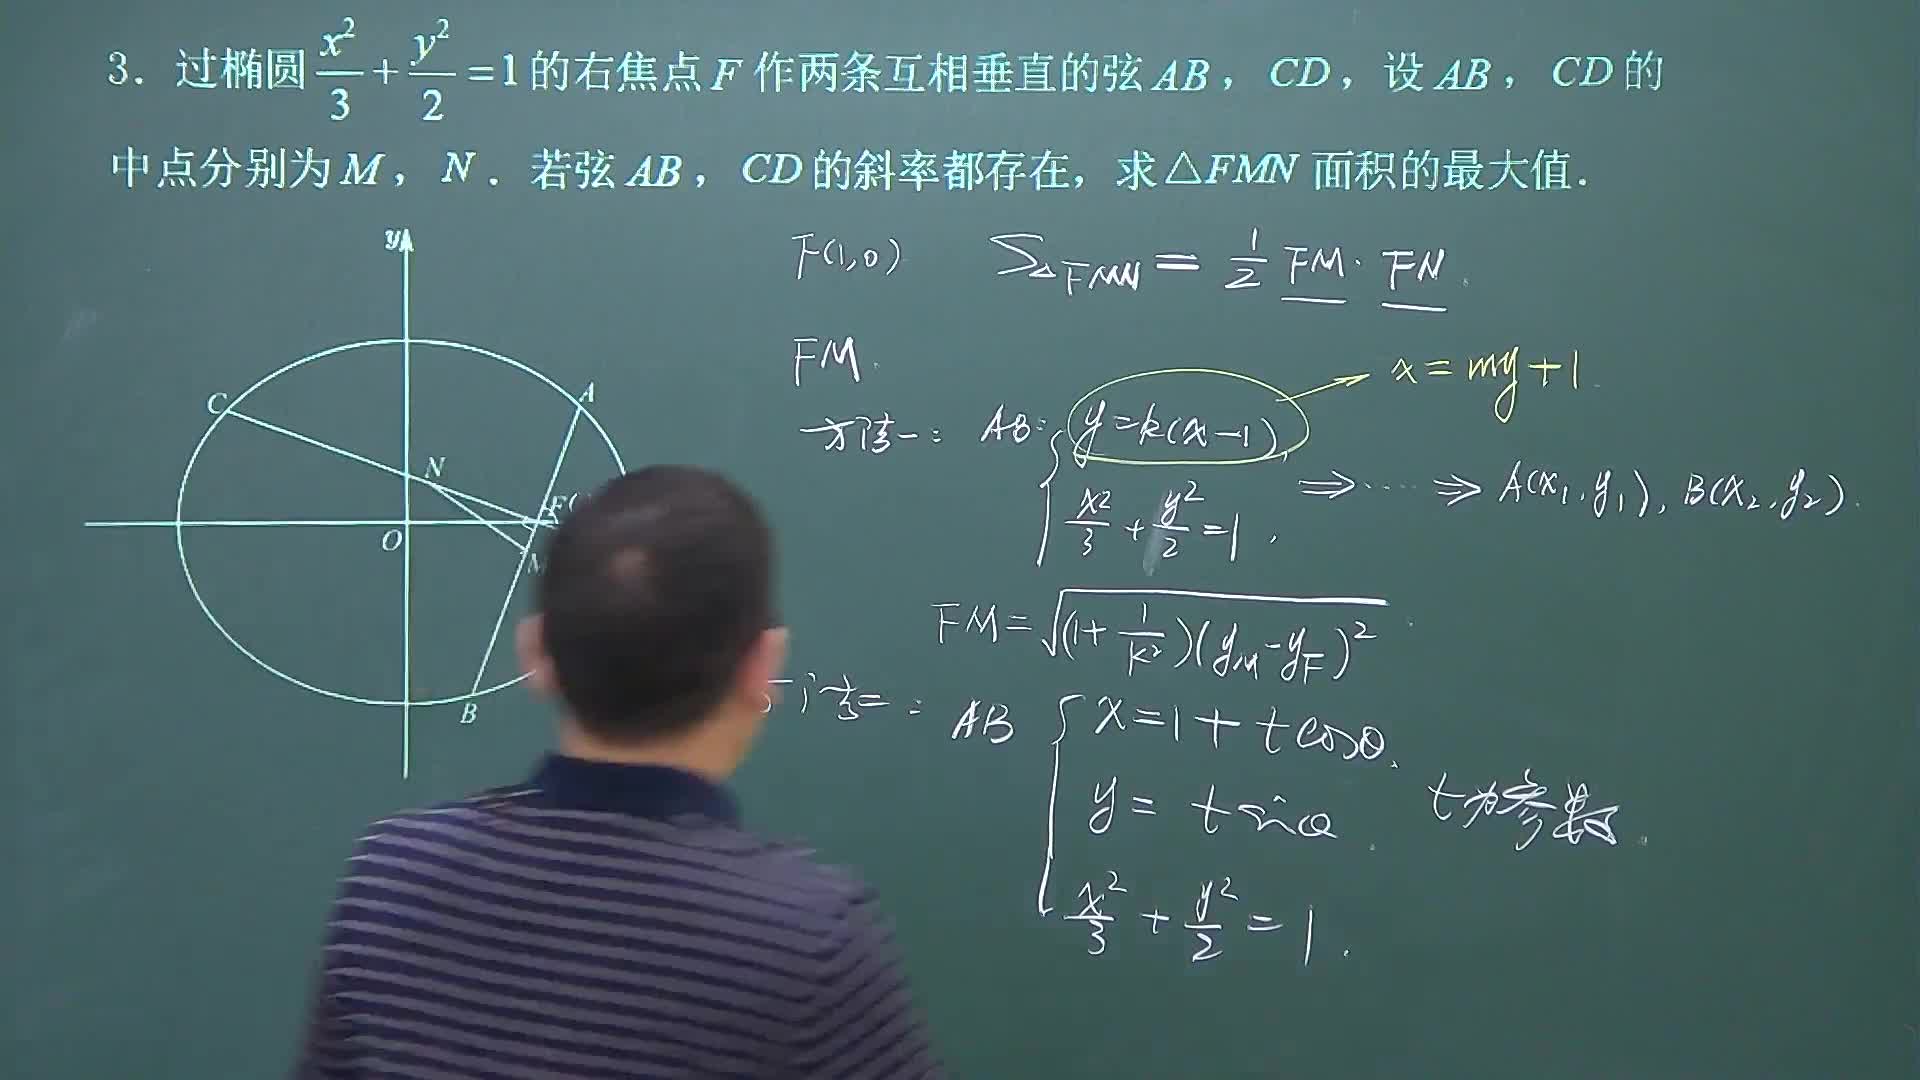 3. 过椭圆 x²/3 + y²/2 = 1 的右焦点 F 作两条互相垂直的弦 AB，CD，设 AB，CD 的
中点分别为 M，N．若弦 AB，CD 的斜率都存在，求△FMN 面积的最大值．
y
C
A
N
F(
O
M
B
F(1,0) S△FMN = 1/2 FM · FN.
FM.
x = my + 1
方法一： AB: { y = k(x-1),
x²/3 + y²/2 = 1,
⇒ ···· ⇒ A(x₁, y₁), B(x₂, y₂).
FM = √((1 + 1/k²)(y_M - y_F)²)
方法二： AB { x = 1 + t cosθ.
y = t sinθ. t为参数.
x²/3 + y²/2 = 1.